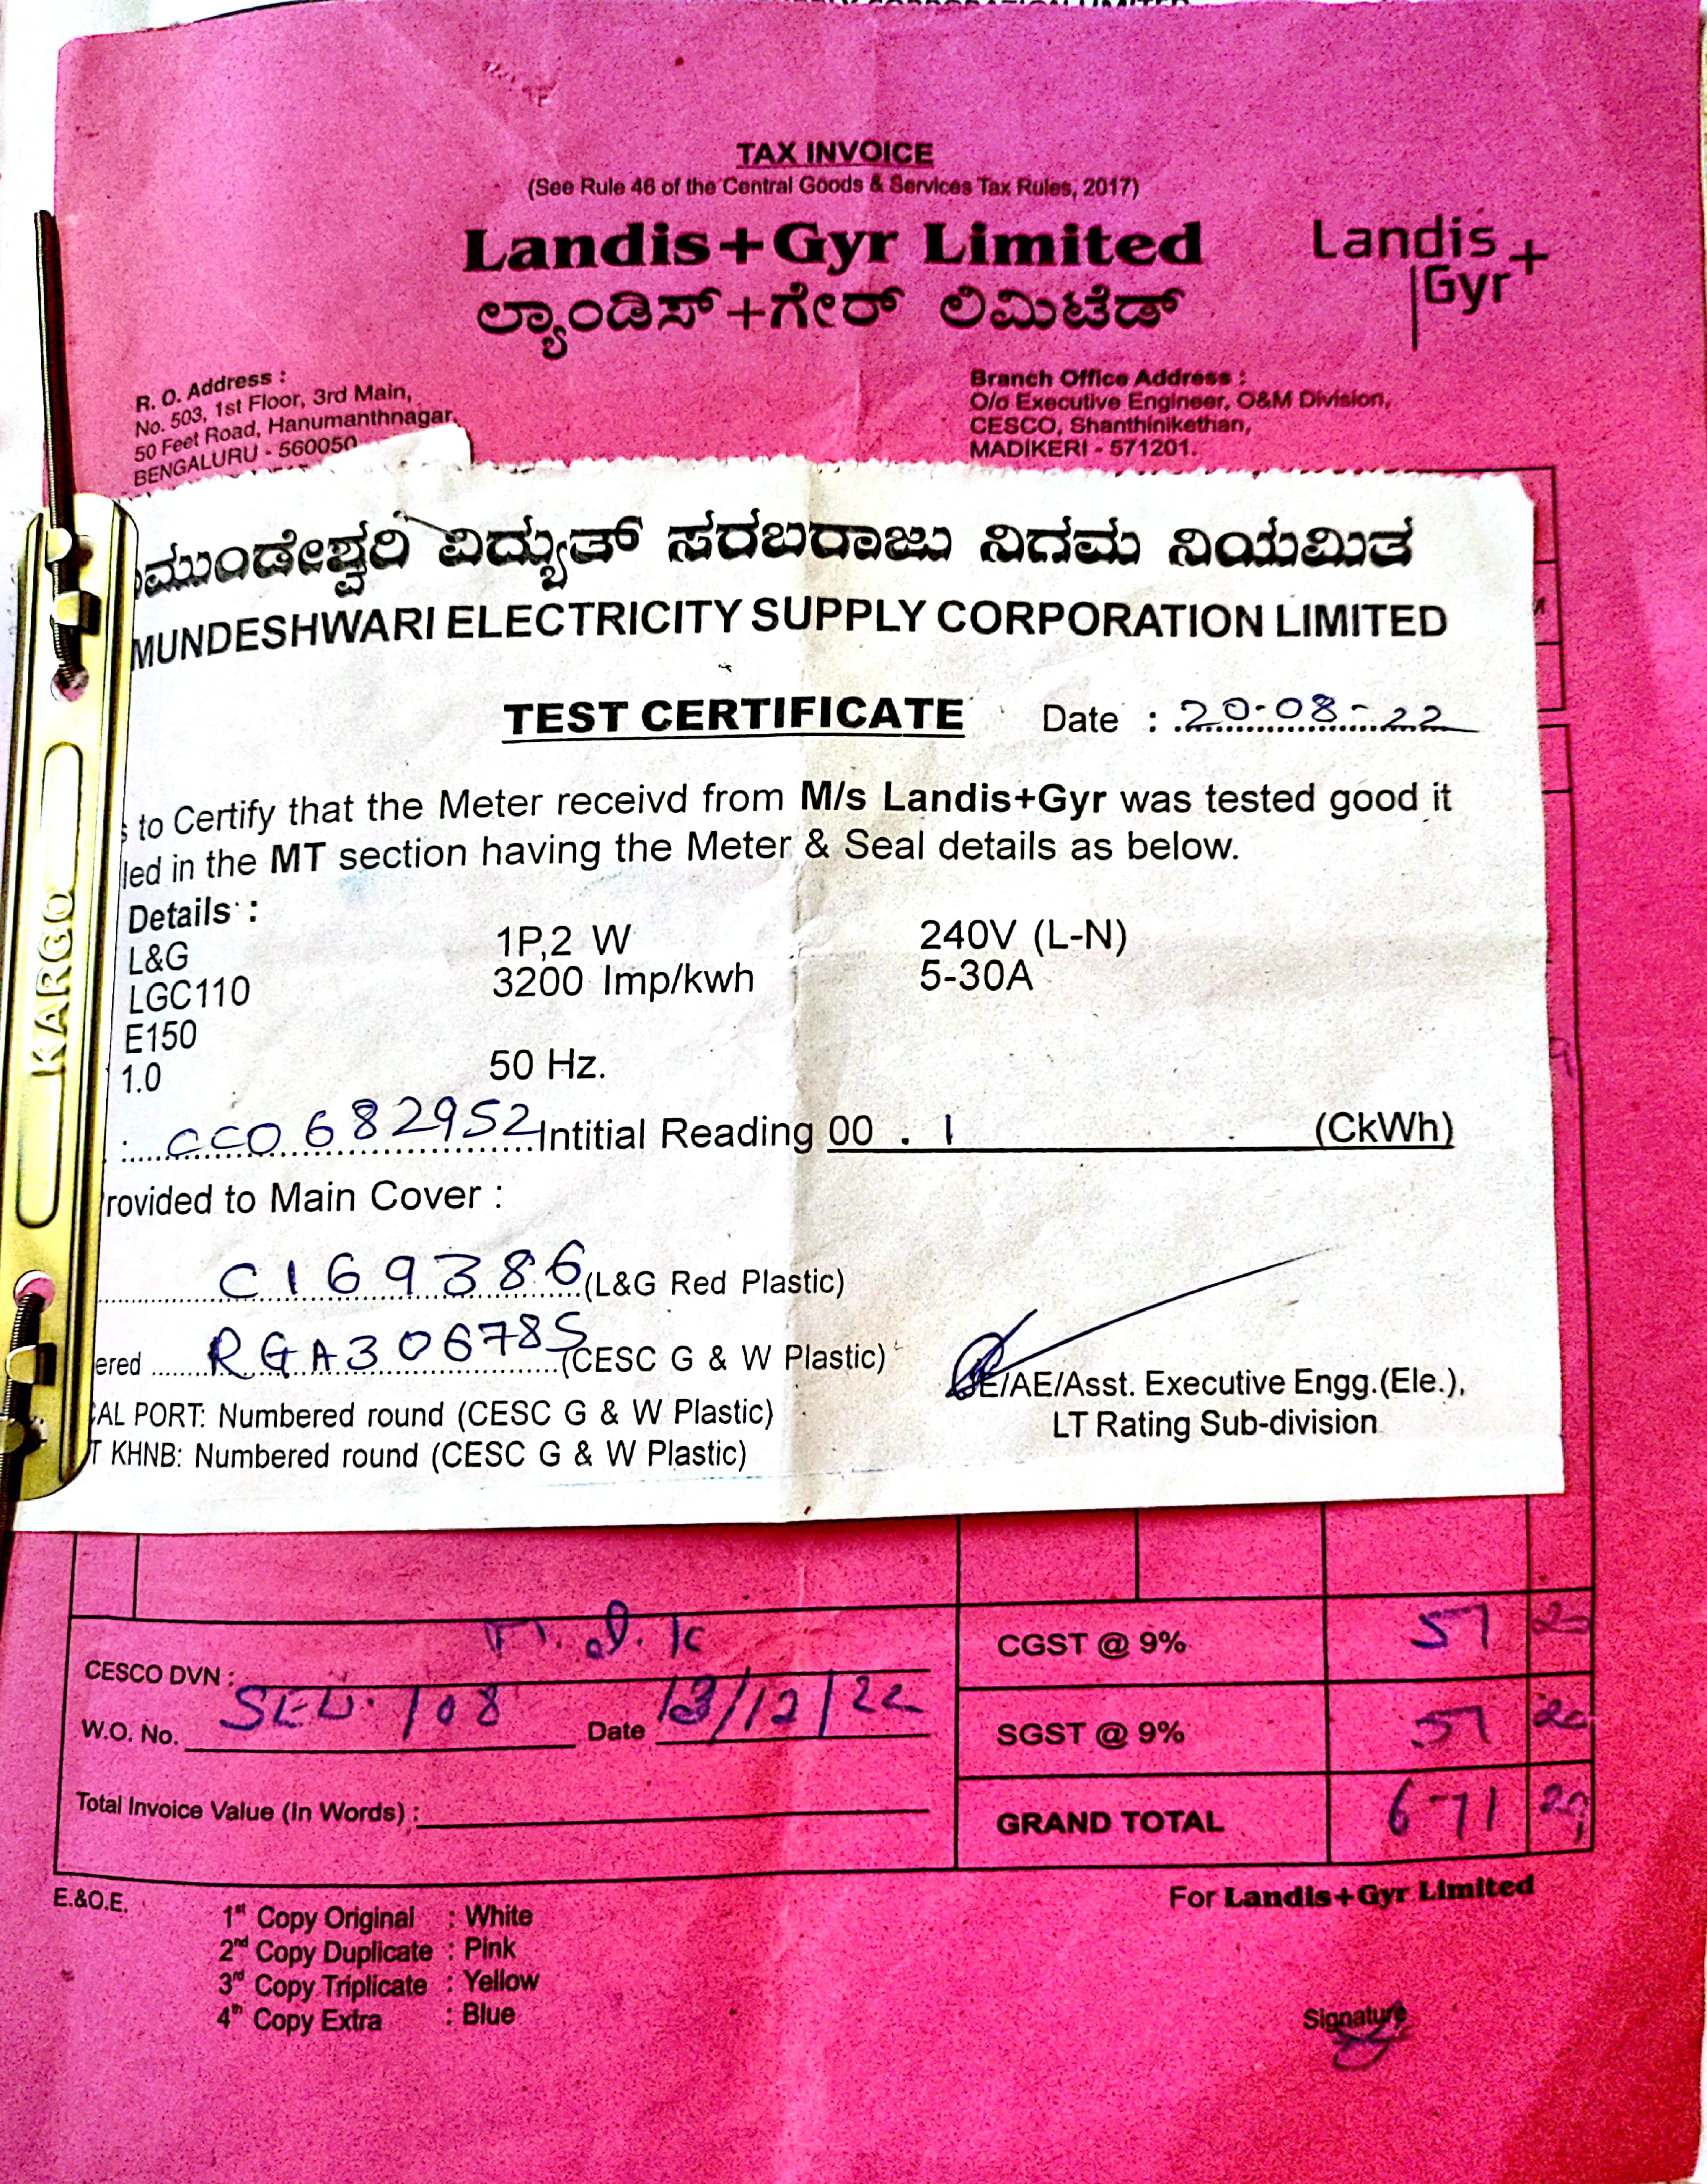 TAX INVOICE
(See Rule 46 of the Central Goods & Services Tax Rules, 2017)
Landis+Gyr Limited
ಲ್ಯಾಂಡಿಸ್+ಗೇರ್ ಲಿಮಿಟೆಡ್
Landis
Gyr+
R. O. Address :
No. 503, 1st Floor, 3rd Main,
50 Feet Road, Hanumanthnagar,
BENGALURU - 560050
Branch Office Address :
O/o Executive Engineer, O&M Division,
CESCO, Shanthinikethan,
MADIKERI - 571201.
ಮುಂಡೇಶ್ವರಿ ವಿದ್ಯುತ್ ಸರಬರಾಜು ನಿಗಮ ನಿಯಮಿತ
MUNDESHWARI ELECTRICITY SUPPLY CORPORATION LIMITED
TEST CERTIFICATE Date : 20-08-22
s to Certify that the Meter receivd from M/s Landis+Gyr was tested good it
led in the MT section having the Meter & Seal details as below.
Details :
L&G 1P,2 W 240V (L-N)
LGC110 3200 Imp/kwh 5-30A
E150
1.0 50 Hz.
: CC0682952 Intitial Reading 00 . 1 (CkWh)
rovided to Main Cover :
C169386 (L&G Red Plastic)
ered RGA306785 (CESC G & W Plastic)
JE/AE/Asst. Executive Engg.(Ele.),
LT Rating Sub-division
CAL PORT: Numbered round (CESC G & W Plastic)
T KHNB: Numbered round (CESC G & W Plastic)
KARGO
CGST @ 9% 57 20
CESCO DVN :
W.O. No. 108 Date 13/12/22
SGST @ 9% 57 20
Total Invoice Value (In Words) :
GRAND TOTAL 671
E.&O.E.
For Landis+Gyr Limited
1st Copy Original : White
2nd Copy Duplicate : Pink
3rd Copy Triplicate : Yellow
4th Copy Extra : Blue
Signature